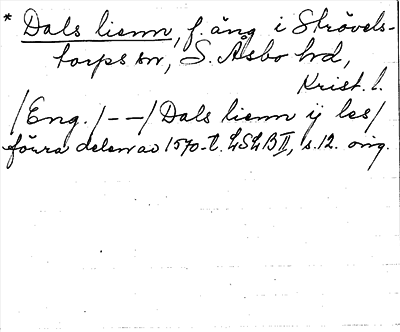 * Dals lienn, f. äng i Strövels-
torps sn, S. Åsbo hd,
Krist. l.
/Eng./--/Dals lienn ij les/
förra delen av 1570-t. LSLB II, s. 12. orig.